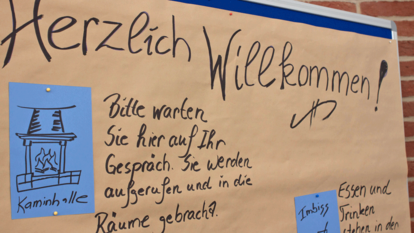 Herzlich Willkommen!
Bitte warten
Sie hier auf Ihr
Gespräch. Sie werden
aufgerufen und in die
Räume gebracht.
Kaminhalle
Imbiss
Essen und
Trinken
stehen in den